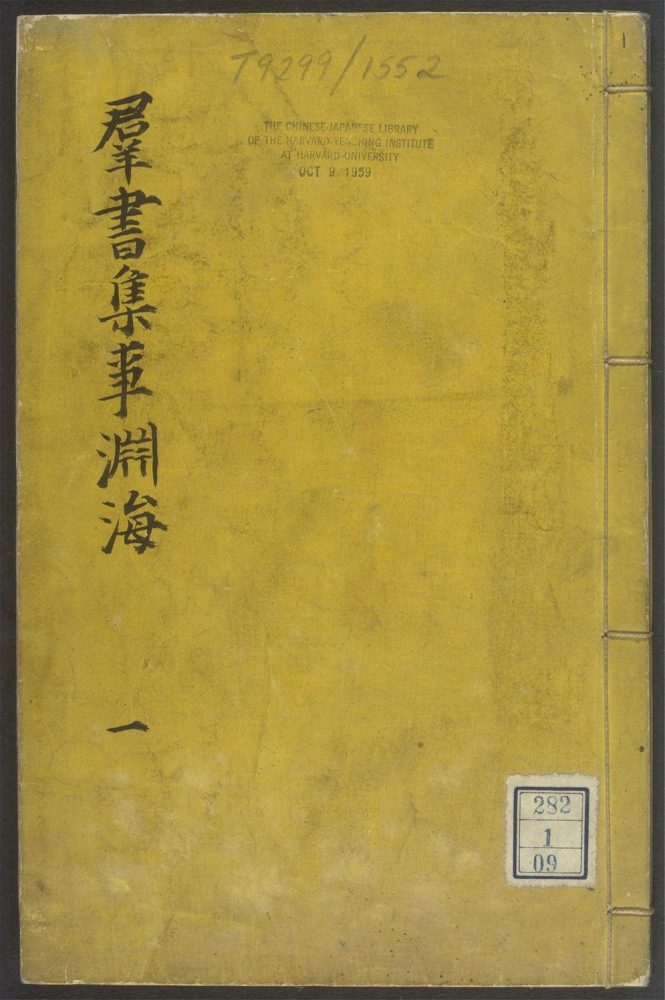 T9299/1552
THE CHINESE-JAPANESE LIBRARY
OF THE HARVARD-YENCHING INSTITUTE
AT HARVARD UNIVERSITY
OCT 9 1959
羣書集事淵海
一
1
282
1
09